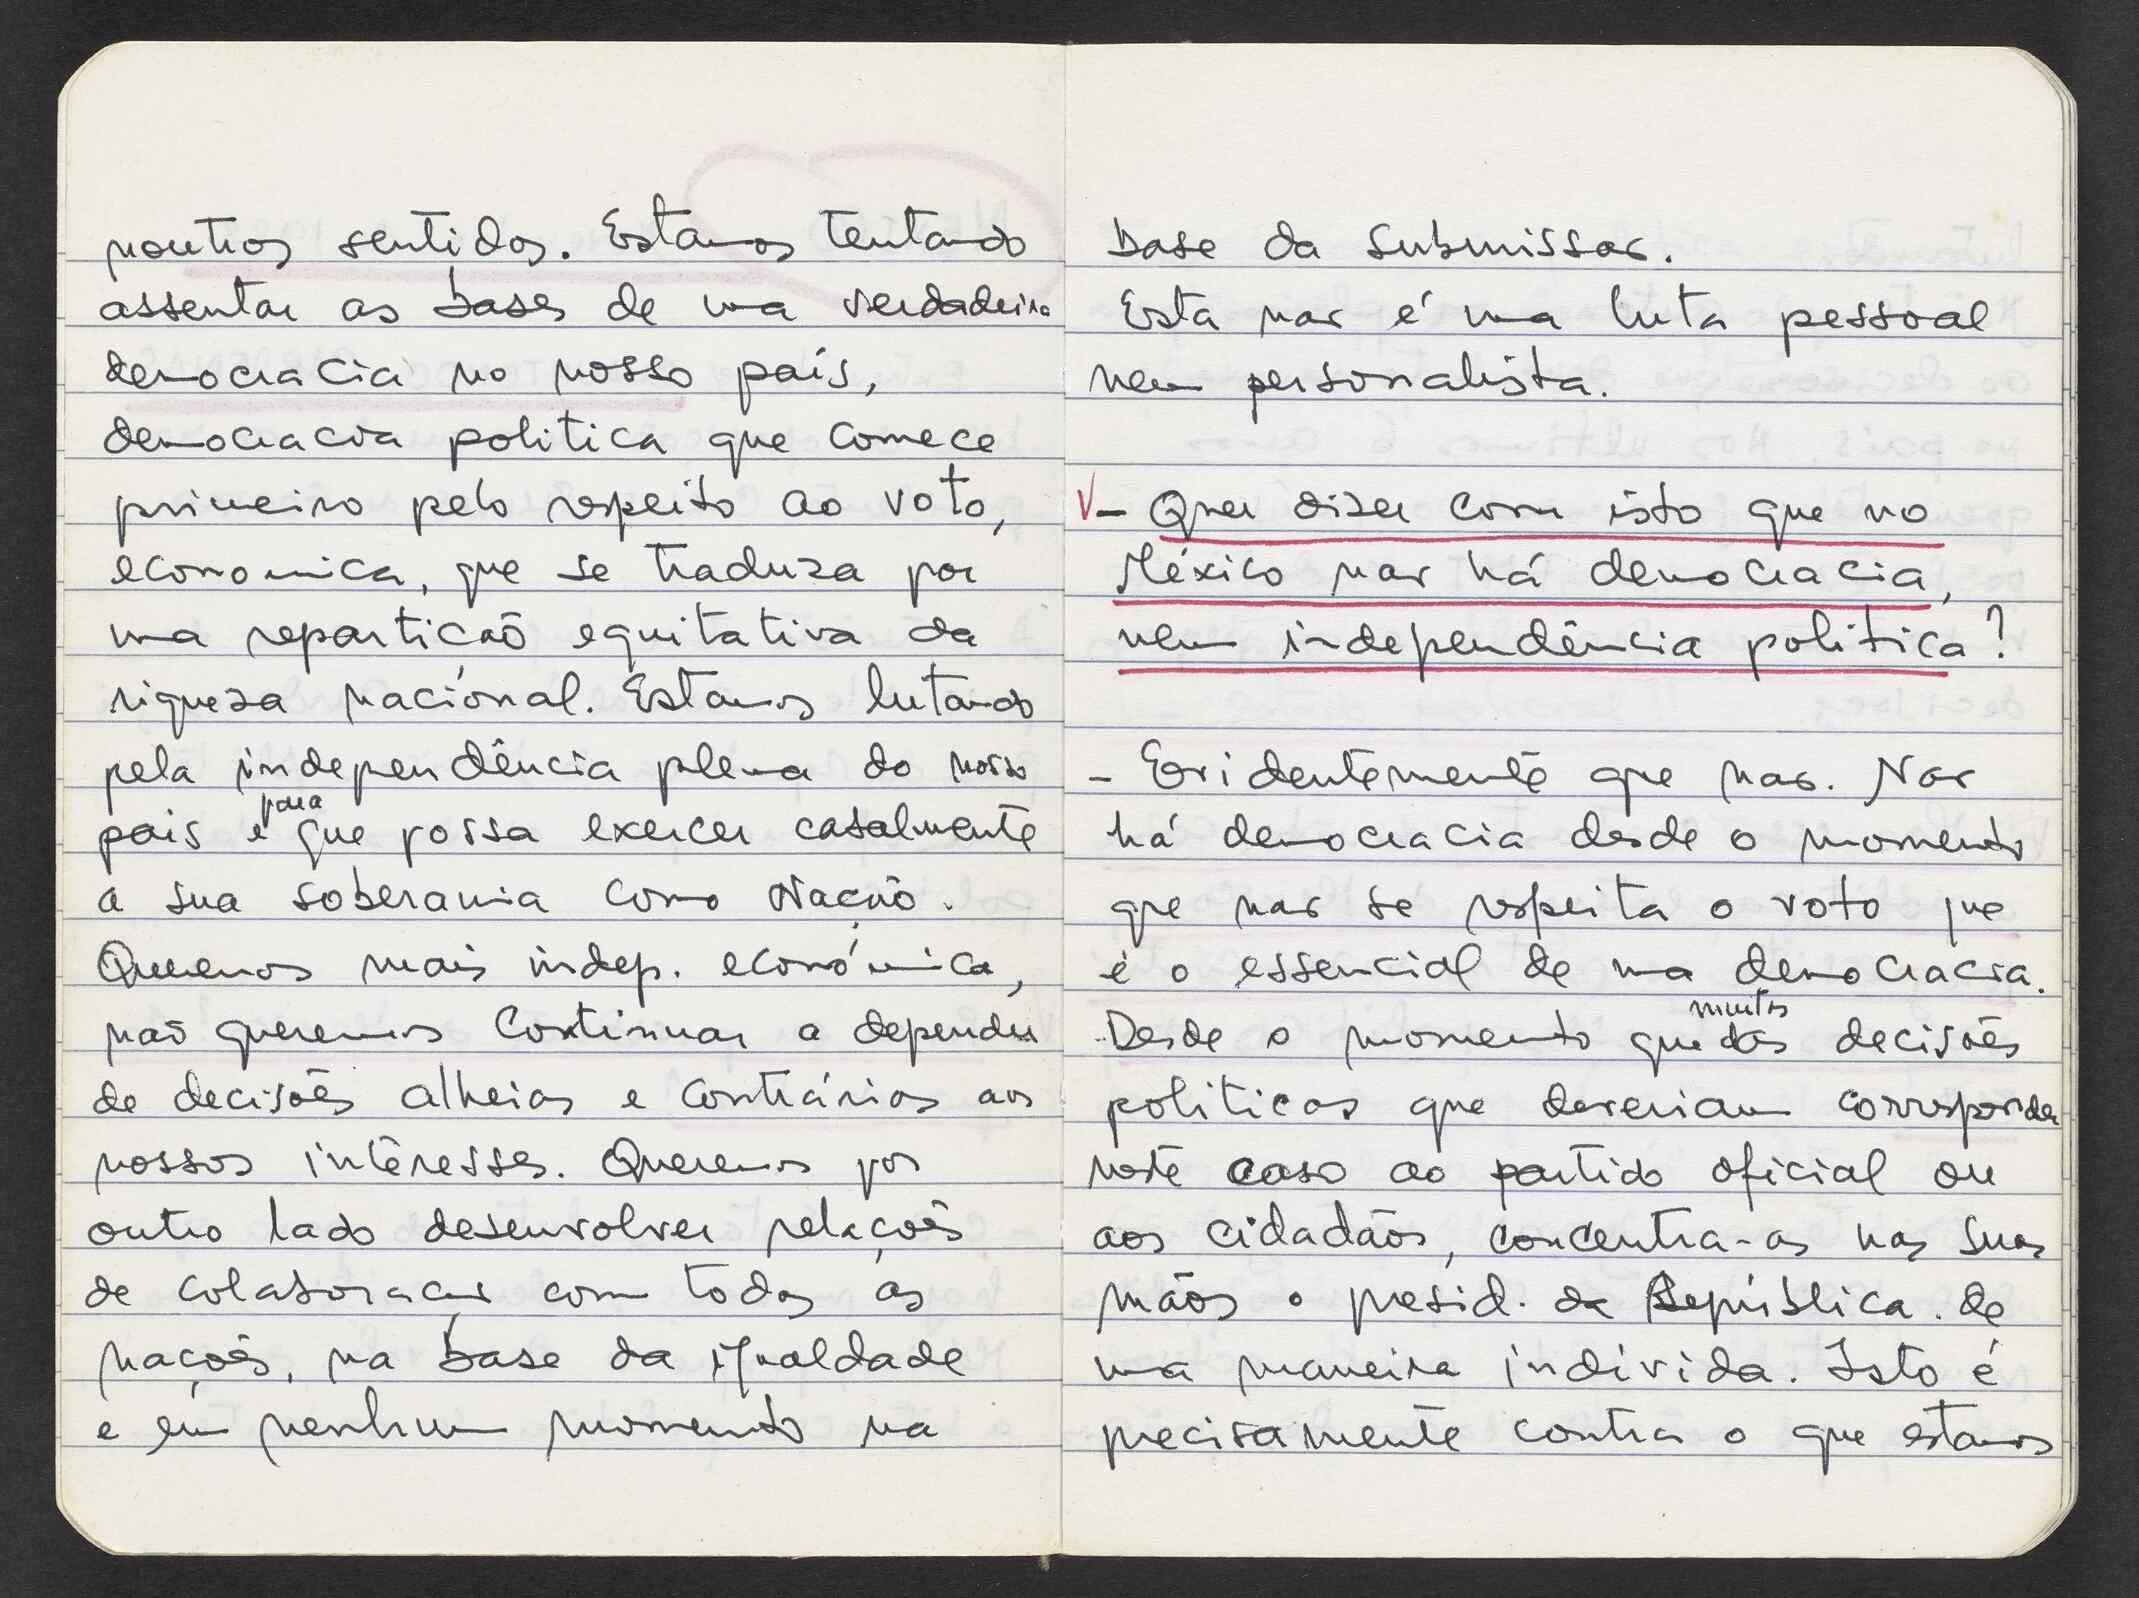 noutros sentidos. Estamos tentando
assentar as bases de uma verdadeira
democracia no nosso país,
democracia politica que comece
primeiro pelo respeito ao voto,
economica, que se traduza por
uma reparticaõ equitativa da
riqueza nacional. Estamos lutando
pela independência plena do nosso
pais e para que possa exercer cabalmente
a sua soberania como Naçaõ.
Queremos mais indep. económica,
naõ queremos continuar a depender
de decisões alheias e contrárias aos
nossos intêresses. Queremos por
outro lado desenvolver relações
de colaboraçao com todas as
nações, na base da igualdade
e em nenhum momento na
base da submissao.
Esta nao é uma luta pessoal
nem personalista.
V- Quer dizer com isto que no
México nao há democracia,
nem independência politica?
- Evidentemente que nao. Nao
há democracia desde o momento
que nao se respeita o voto que
é o essencial de uma democracia.
muitas
Desde o momento que das decisões
politicas que deveriam corresponder
neste caso ao partido oficial ou
aos cidadãos, concentra-as nas suas
mãos o presid. da República. de
uma maneira individa. Isto é
precisamente contra o que estamos